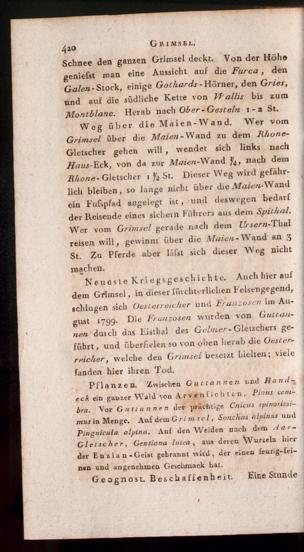 420 GRIMSEL.
Schnee den ganzen Grimsel deckt. Von der Höhe
geniesst man eine Aussicht auf die Furca, den
Galen-Stock, einige Gothards-Hörner, den Gries,
und auf die südliche Kette von Wallis bis zum
Montblanc. Herab nach Ober-Gesteln 1-2 St.
Weg über die Maien-Wand. Wer vom
Grimsel über die Maien-Wand zu dem Rhone-
Gletscher gehen will, wendet sich links nach
Haus-Eck, von da zur Maien-Wand ¾, nach dem
Rhone-Gletscher 1 ½ St. Dieser Weg wird gefähr-
lich bleiben, so lange nicht über die Maien-Wand
ein Fufspfad angelegt ist, und deswegen bedarf
der Reisende eines sichern Führers aus dem Spithal.
Wer vom Grimsel gerade nach dem Ursern-Thal
reisen will, gewinnt über die Maien-Wand an 3
St. Zu Pferde aber läfst sich dieser Weg nicht
machen.
Neueste Kriegsgeschichte. Auch hier auf
dem Grimsel, in dieser fürchterlichen Felsengegend,
schlugen sich Oesterreicher und Franzosen im Au-
gust 1799. Die Franzosen wurden von Guttan-
nen durch das Eisthal des Gelmer-Gletschers ge-
führt, und überfielen so von oben herab die Oester-
reicher, welche den Grimsel besetzt hielten; viele
fanden hier ihren Tod.
Pflanzen. Zwischen Guttannen und Hand-
eck ein ganzer Wald von Arvenfichten, Pinus cem-
bra. Vor Guttannen der prächtige Cnicus spinosissi-
mus in Menge. Auf dem Grimsel, Sonchus alpinus und
Pinguicula alpina. Auf den Weiden nach dem Aar-
Gletscher, Gentiana lutea, aus deren Wurzeln hier
der Enzian-Geist gebrannt wird, der einen feurig-fei-
nen und angenehmen Geschmack hat.
Geognost. Beschaffenheit. Eine Stunde